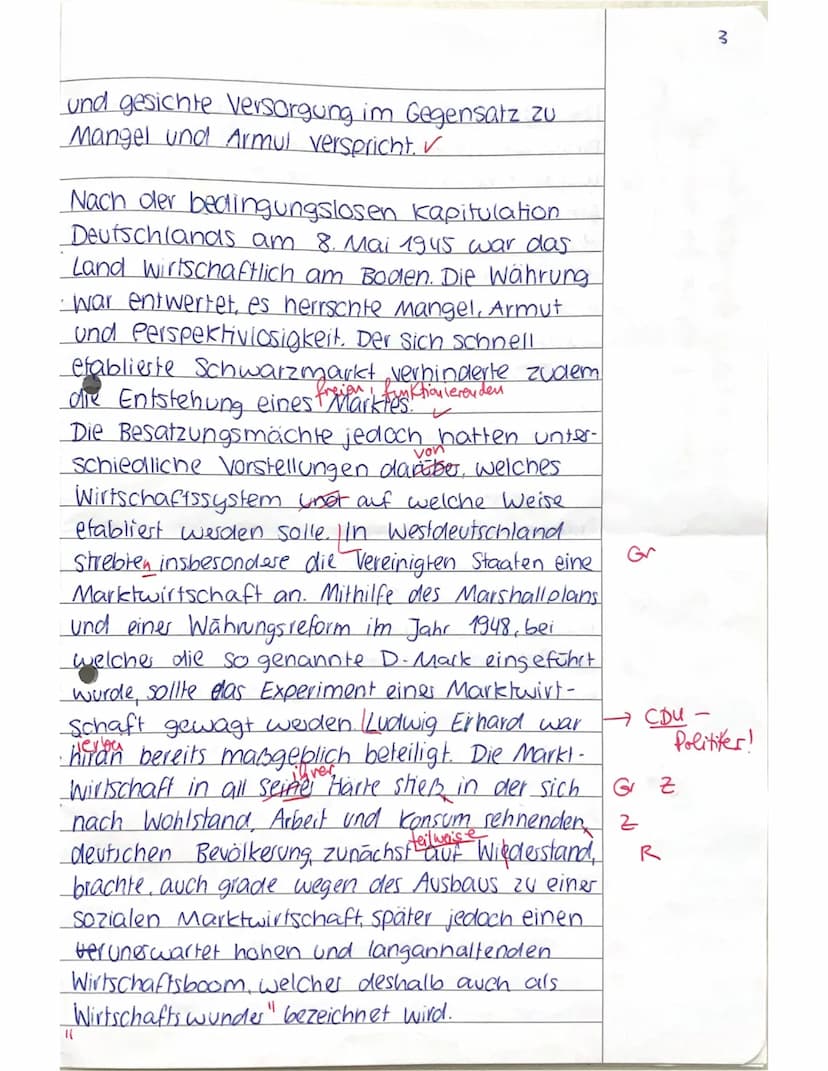 3
und gesichte Versorgung im Gegensatz zu
Mangel und Armut verspricht. ✓
Nach der bedingungslosen Kapitulation
Deutschlands am 8. Mai 1945 war das
Land wirtschaftlich am Boden. Die Währung
war entwertet, es herrschte Mangel, Armut
und Perspektivlosigkeit. Der sich schnell
etablierte Schwarzmarkt verhinderte zudem
freien, funktionierenden
die Entstehung eines Marktes. ✓
Die Besatzungsmächte jedoch hatten unter-
von
schiedliche Vorstellungen darüber, welches
Wirtschaftssystem und auf welche Weise
etabliert werden solle. In Westdeutschland
strebten insbesondere die Vereinigten Staaten eine Gr
Marktwirtschaft an. Mithilfe des Marshallplans
und einer Währungsreform im Jahr 1948, bei
welcher die so genannte D-Mark eingeführt
wurde, sollte das Experiment eines Marktwirt-
schaft gewagt werden. Ludwig Erhard war → CDU-
Politiker!
ierbu
hiran bereits maßgeblich beteiligt. Die Markt-
ihrer
wirtschaft in all seiner Härte stieß in der sich Gr Z
nach Wohlstand, Arbeit und Konsum sehnenden, Z
teilweise
deutschen Bevölkerung zunächst auf Wiederstand, R
brachte, auch grade wegen des Ausbaus zu einer
sozialen Marktwirtschaft, später jedoch einen
unerwartet hohen und langanhaltenden
Wirtschaftsboom, welcher deshalb auch als
"Wirtschaftswunder" bezeichnet wird.